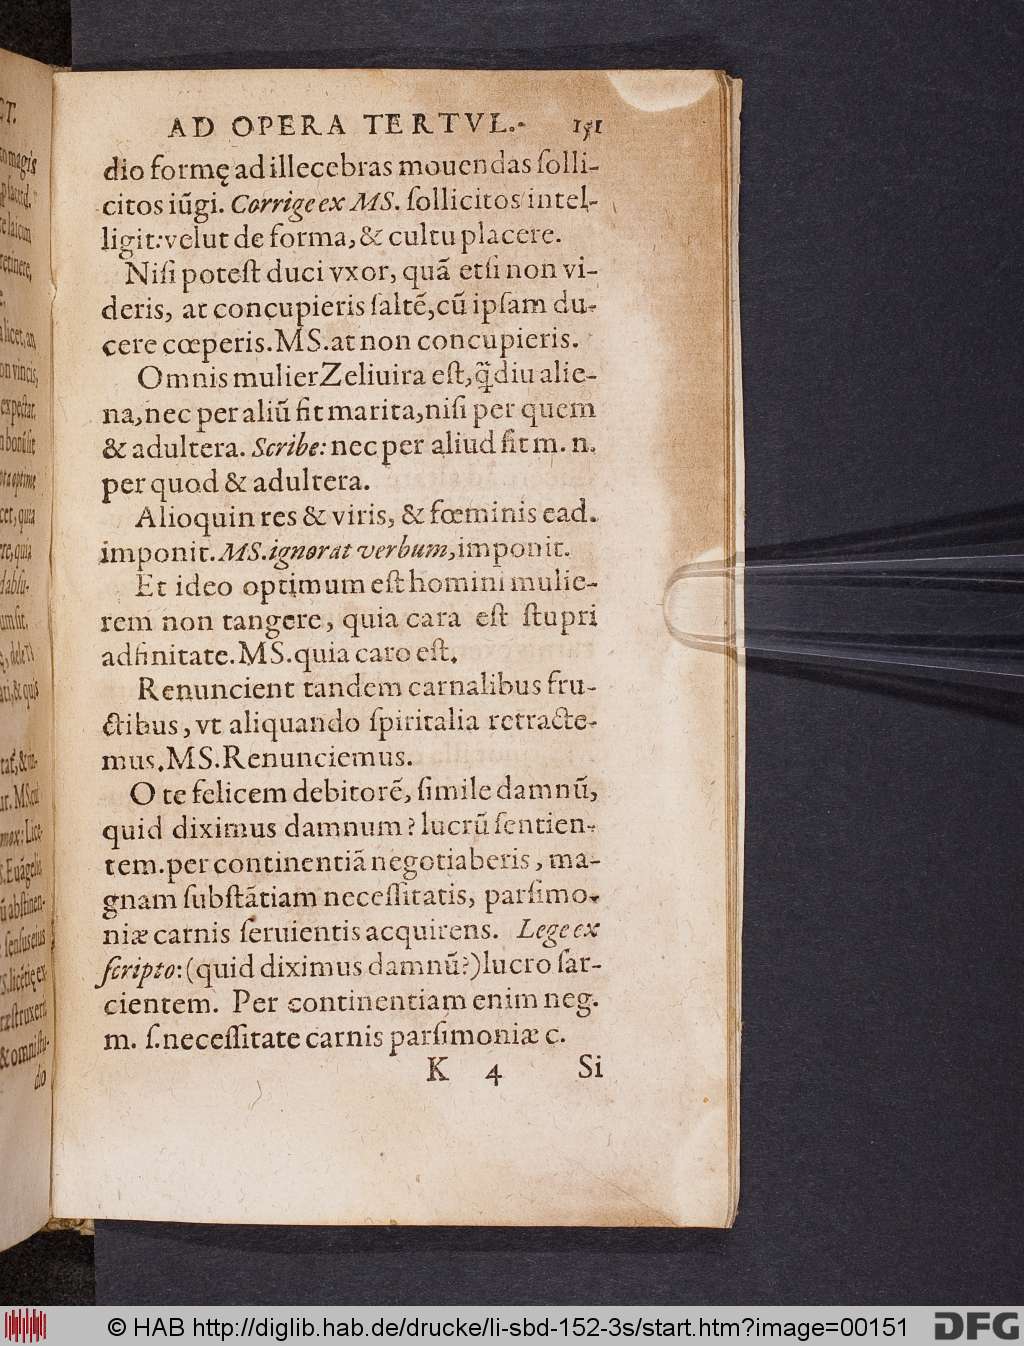 AD OPERA TERTVL. 151
dio formę ad illecebras mouendas ſolli-
citos iũgi. Corrige ex MS. ſollicitos intel-
ligit: velut de forma, & cultu placere.
Niſi poteſt duci vxor, quã etſi non vi-
deris, at concupieris ſaltẽ, cũ ipſam du-
cere cœperis. MS. at non concupieris.
Omnis mulier Zeliuira eſt, q̃diu alie-
na, nec per aliũ fit marita, niſi per quem
& adultera. Scribe: nec per aliud fit m. n.
per quod & adultera.
Alioquin res & viris, & fœminis ead.
imponit. MS. ignorat verbum, imponit.
Et ideo optimum eſt homini mulie-
rem non tangere, quia cara eſt ſtupri
adfinitate. MS. quia caro eſt.
Renuncient tandem carnalibus fru-
ctibus, vt aliquando ſpiritalia retracte-
mus. MS. Renunciemus.
O te felicem debitorẽ, ſimile damnũ,
quid diximus damnum? lucrũ ſentien-
tem. per continentiã negotiaberis, ma-
gnam ſubſtãtiam neceſſitatis, parſimo-
niæ carnis ſeruientis acquirens. Lege ex
ſcripto: (quid diximus damnũ?) lucro ſar-
cientem. Per continentiam enim neg.
m. ſ. neceſſitate carnis parſimoniæ c.
K 4 Si
© HAB http://diglib.hab.de/drucke/li-sbd-152-3s/start.htm?image=00151 DFG